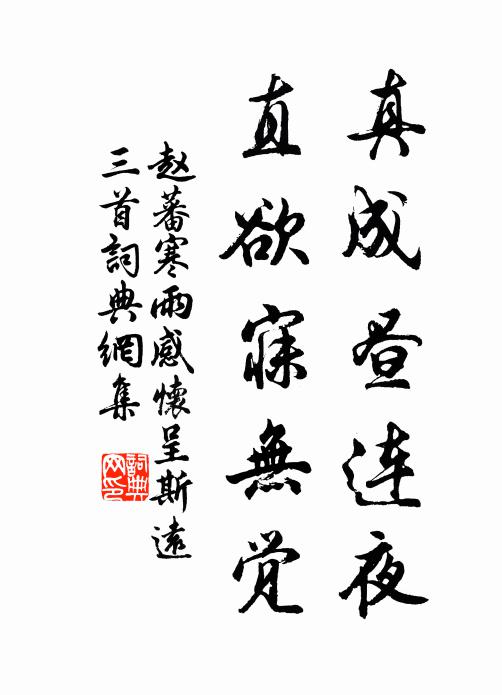 真成昼连夜
直欲寐無觉
赵蕃寒雨感懷呈斯遠
三首詞典網集
詞典网印